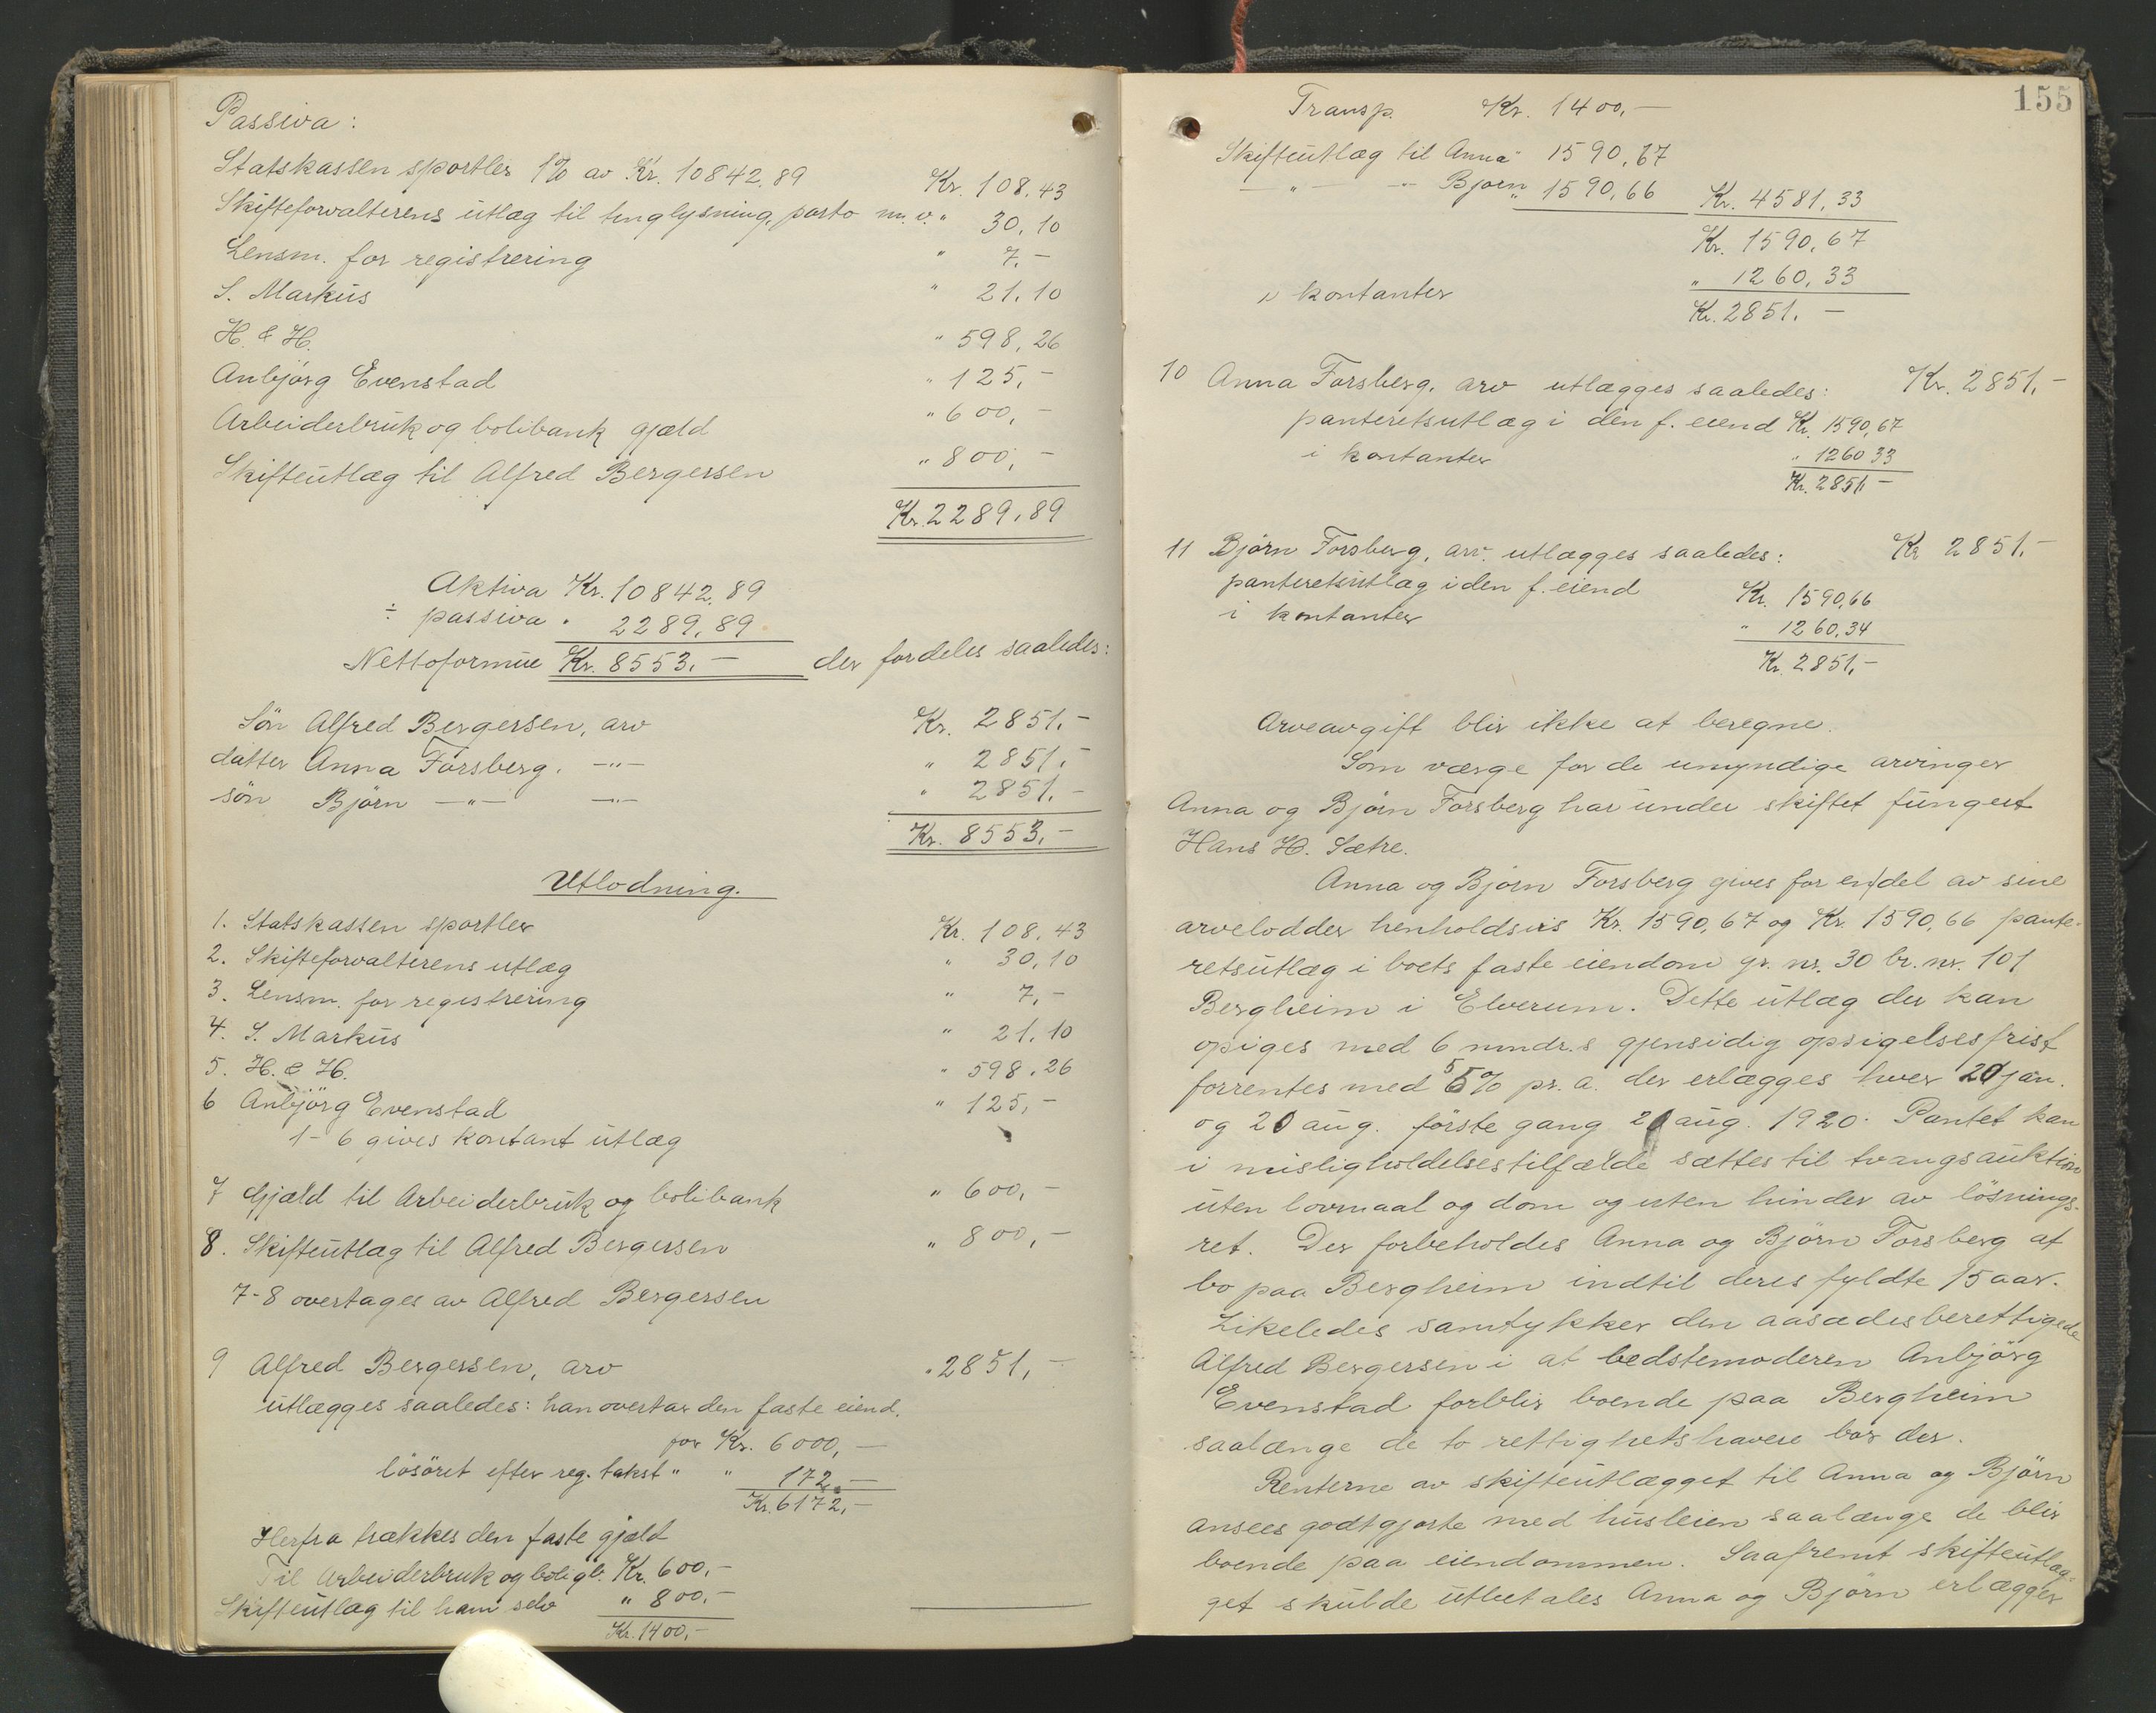 Passiva:
Statskassen sportler 1% av Kr. 10842.89 Kr. 108.43
Skifteforvalterens utlæg til tinglysning, porto m. v. " 30.10
Lensm. for registrering " 7.-
S. Markus " 21.10
H. & H. " 598.26
Anbjörg Evenstad " 125.-
Arbeiderbruk og bolibank gjæld " 600,-
Skifteutlæg til Alfred Bergersen " 800,-
Kr. 2289.89
Aktiva Kr. 10842.89
÷ passiva " 2289.89
Nettoformue Kr. 8553.- der fordeles saaledes:
Sön Alfred Bergersen, arv Kr. 2851.-
datter Anna Forsberg. -"- " 2851.-
sön Björn -"- -"- " 2851.-
Kr. 8553.-
Utlodning.
1. Statskassen sportler Kr. 108.43
2. Skifteforvalterens utlæg " 30.10
3. Lensm. for registrering " 7,-
4. S. Markus " 21.10
5. H. & H. " 598.26
6 Anbjörg Evenstad " 125,-
1-6 gives kontant utlæg
7 Gjæld til Arbeiderbruk og bolibank " 600,-
8. Skifteutlæg til Alfred Bergersen " 800,-
7-8 overtages av Alfred Bergersen
9 Alfred Bergersen, arv " 2851,-
utlægges saaledes: han overtar den faste eiend.
for Kr. 6000,-
lösöret efter reg. takst " " 172,-
Kr. 6172,-
Herfra trækkes den faste gjæld
Til Arbeiderbruk og boligb. Kr. 600,-
Skifteutlæg til ham selv " 800,-
Kr. 1400,-
155
Transp. Kr. 1400,-
Skifteutlæg til Anna " 1590,67
-"- -"- Björn " 1590,66 Kr. 4581,33
Kr. 1590,67
i kontanter " 1260,33
Kr. 2851.-
10 Anna Forsberg, arv utlægges saaledes: Kr. 2851,-
panteretsutlæg i den f. eiend Kr. 1590,67
i kontanter " 1260 33
Kr. 2851,-
11 Björn Forsberg, arv. utlægges saaledes: Kr 2851.-
panteretsutlæg i den f. eiend Kr. 1590,66
i kontanter " 1260,34
Kr. 2851,-
Arveavgift blir ikke at beregne.
Som værge for de umyndige arvinger
Anna og Björn Forsberg har under skiftet fungert
Hans H. Sætre.
Anna og Björn Forsberg gives for en del av sine
arvelodder henholdsvis Kr. 1590,67 og Kr. 1590,66 pante-
retsutlæg i boets faste eiendom gr. nr. 30 br. nr. 101
Bergheim i Elverum. Dette utlæg der kan
opsiges med 6 mndr.s gjensidig opsigelsesfrist
forrentes med 5% pr. a. der erlægges hver 20 jan.
og 20 aug. förste gang 20 aug. 1920. Pantet kan
i misligholdelsestilfælde sættes til tvangsauktion
uten lovmaal og dom og uten hinder av lösnings-
ret. Der forbeholdes Anna og Björn Forsberg at
bo paa Bergheim indtil deres fyldte 15 aar.
Likeledes samtykker den aasædesberettigede
Alfred Bergersen i at bedstemoderen Anbjörg
Evenstad forblir boende paa Bergheim
saalænge de to rettighetshavere bor der.
Renterne av skifteutlægget til Anna og Björn
ansees godtgjorte med husleien saalænge de blir
boende paa eiendommen. Saafremt skifteutlæg-
get skulde utbetales Anna og Björn erlægger